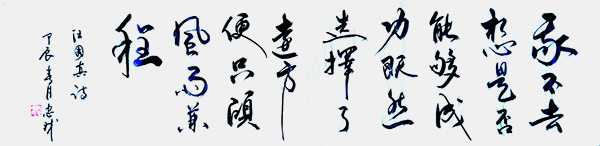 我不去
想是否
能够成
功既然
選擇了
遠方
便只顧
風雨兼
程
汪國真詩
甲辰春月